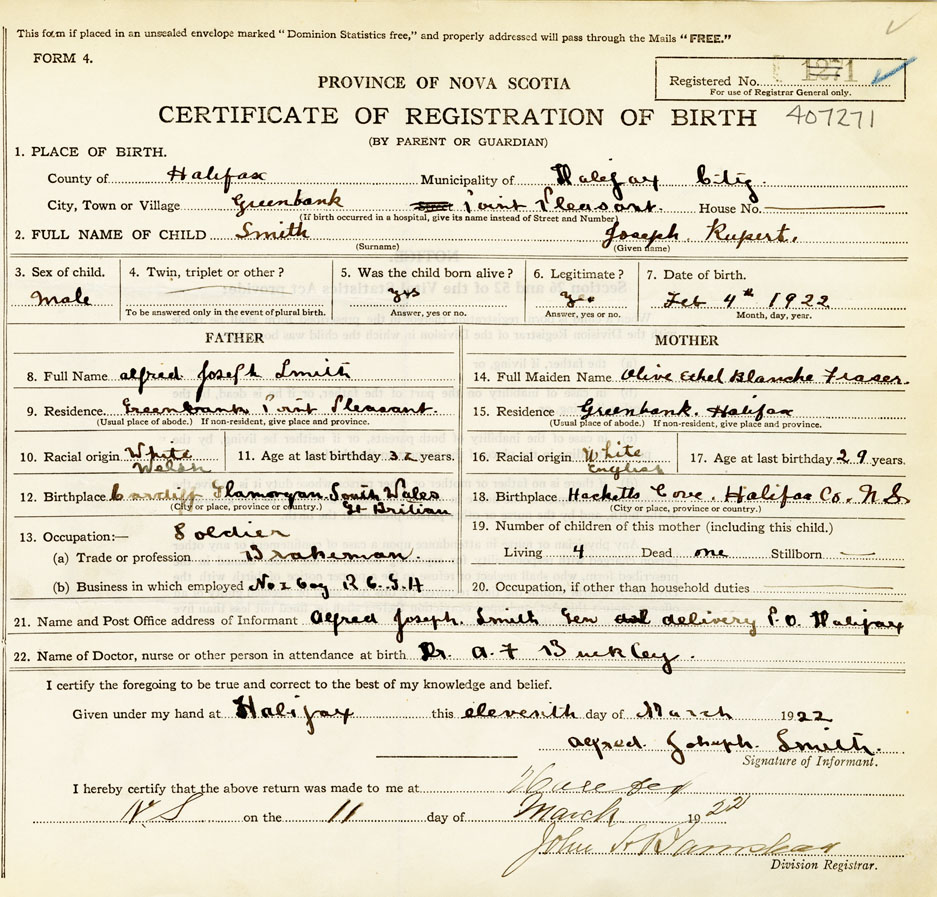 This form if placed in an unsealed envelope marked "Dominion Statistics free," and properly addressed will pass through the Mails "FREE."
FORM 4.
Registered No. 1271
For use of Registrar General only.
PROVINCE OF NOVA SCOTIA
CERTIFICATE OF REGISTRATION OF BIRTH 407271
(BY PARENT OR GUARDIAN)
1. PLACE OF BIRTH.
County of Halifax Municipality of Halifax City
City, Town or Village Greenbank Point Pleasant. House No.
(If birth occurred in a hospital, give its name instead of Street and Number)
2. FULL NAME OF CHILD Smith Joseph. Rupert.
(Surname) (Given name)
3. Sex of child. 4. Twin, triplet or other? 5. Was the child born alive? 6. Legitimate? 7. Date of birth.
Male yes yes Feb 4th 1922
To be answered only in the event of plural birth. Answer, yes or no. Answer, yes or no. Month, day, year.
FATHER
8. Full Name alfred Joseph Smith
9. Residence. Greenbank Point Pleasant.
(Usual place of abode.) If non-resident, give place and province.
10. Racial origin White 11. Age at last birthday 32 years.
Welsh
12. Birthplace Cardiff Glamorgan. South Wales
(City or place, province or country.) Gt Britian
13. Occupation:— Soldier
(a) Trade or profession Brakeman
(b) Business in which employed No 2 Coy R C. G. H
MOTHER
14. Full Maiden Name Olive Ethel Blanche Fraser.
15. Residence Greenbank. Halifax
(Usual place of abode.) If non-resident, give place and province.
16. Racial origin White 17. Age at last birthday 29 years.
English
18. Birthplace Hacketts Cove. Halifax Co. N.S.
(City or place, province or country.)
19. Number of children of this mother (including this child.)
Living 4 Dead one Stillborn —
20. Occupation, if other than household duties
21. Name and Post Office address of Informant Alfred Joseph. Smith Gen delivery P.O. Halifax
22. Name of Doctor, nurse or other person in attendance at birth Dr. A. F Buckley.
I certify the foregoing to be true and correct to the best of my knowledge and belief.
Given under my hand at Halifax this eleventh day of March 1922
alfred. Joseph. Smith.
Signature of Informant.
I hereby certify that the above return was made to me at
N S on the 11 day of March 1922
John
Division Registrar.